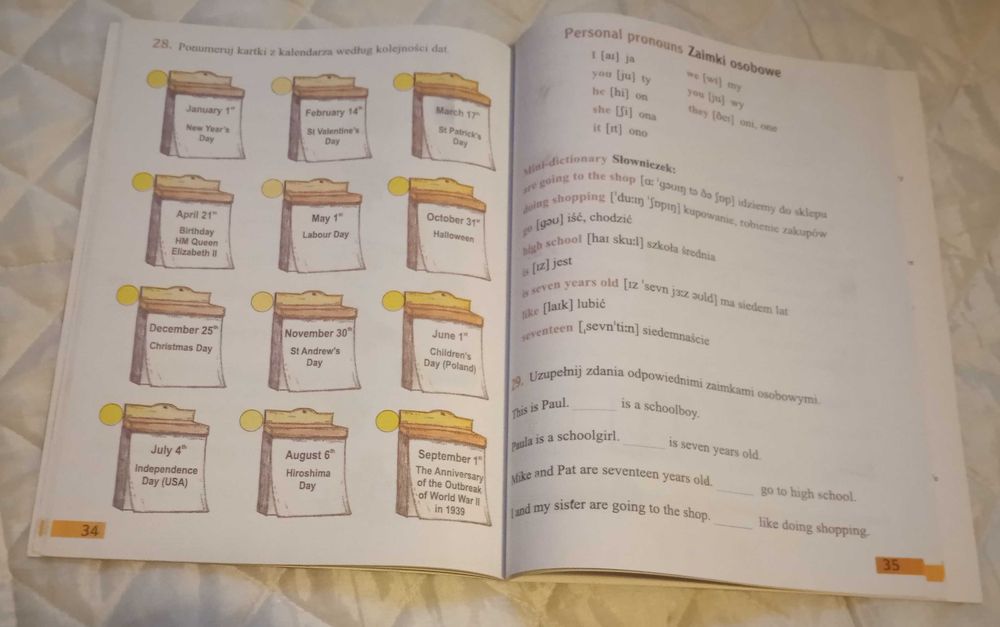 28. Ponumeruj kartki z kalendarza według kolejności dat.
January 1st
New Year's
Day
February 14th
St Valentine's
Day
March 17th
St Patrick's
Day
April 21st
Birthday
HM Queen
Elizabeth II
May 1st
Labour Day
October 31st
Halloween
December 25th
Christmas Day
November 30th
St Andrew's
Day
June 1st
Children's
Day (Poland)
July 4th
Independence
Day (USA)
August 6th
Hiroshima
Day
September 1st
The Anniversary
of the Outbreak
of World War II
in 1939
34
Personal pronouns Zaimki osobowe
I [aɪ] ja
you [ju] ty
he [hi] on
she [ʃi] ona
it [ɪt] ono
we [wi] my
you [ju] wy
they [ðeɪ] oni, one
Mini-dictionary Słowniczek:
are going to the shop [ɑ: 'gəʊɪŋ tə ðə ʃɒp] idziemy do sklepu
doing shopping ['du:ɪŋ 'ʃɒpɪŋ] kupowanie, robienie zakupów
go [gəʊ] iść, chodzić
high school [haɪ sku:l] szkoła średnia
is [ɪz] jest
is seven years old [ɪz 'sevn jɜ:z əʊld] ma siedem lat
like [laɪk] lubić
seventeen [ˌsevn'ti:n] siedemnaście
29. Uzupełnij zdania odpowiednimi zaimkami osobowymi.
This is Paul. ______ is a schoolboy.
Paula is a schoolgirl. ______ is seven years old.
Mike and Pat are seventeen years old. ______ go to high school.
I and my sister are going to the shop. ______ like doing shopping.
35